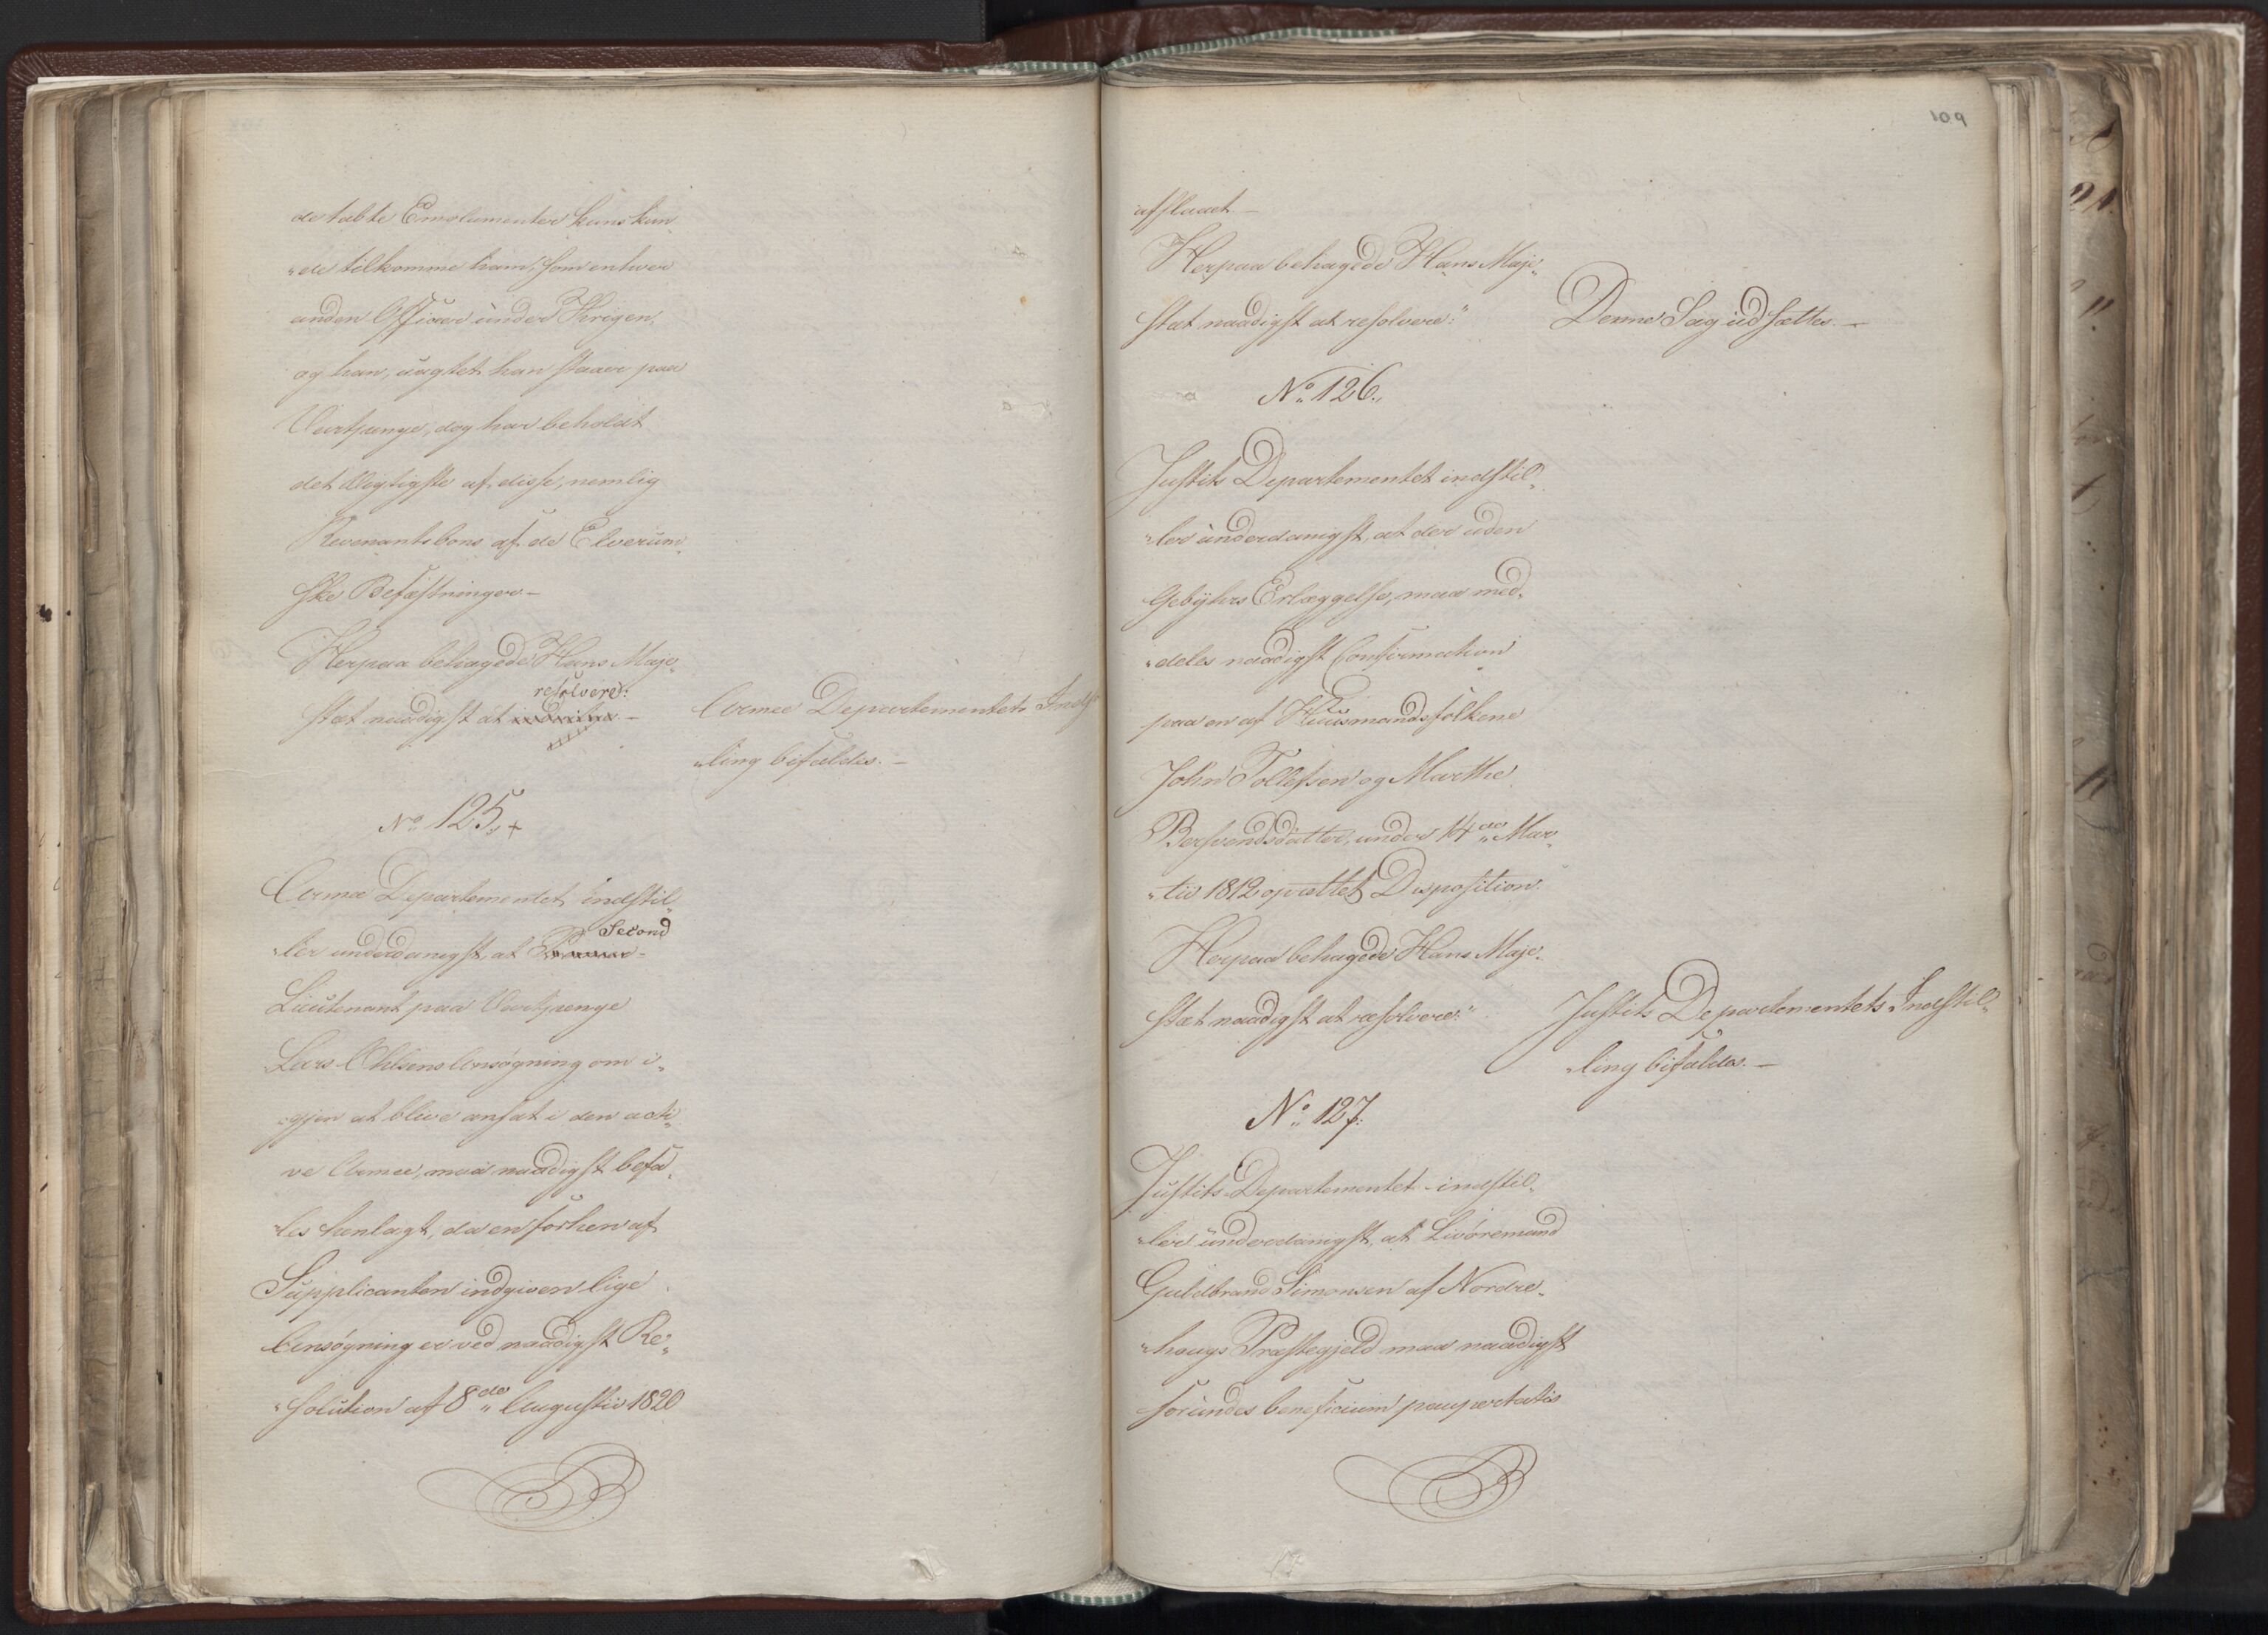 de tabte Emolumenter kuns kun„
„de tilkomme ham, som enhver
anden Officier under Krigen,
og han, uagtet han staaer paa
Vartpenge, dog har beholdt
det vigtigste af disse, nemlig
Revenant bons af de Elverum„
ske Befæstninger. –
Herpaa behagede Hans Maje„
resolvere:
stæt naadigst at
Armee Departementets Indst
„ling bifaldes. –
No 125. +
Armee Departementet indstil„
Second
„ler underdanigst, at Premier-
Lieutenant paa Vartpenge
Lars Ohlsens Ansøgning om i„
„gjen at blive ansat i den acti„
ve Armee, maa naadigst befa„
„les henlagt, da en forhen af
Supplicanten indgiven lige
Ansøgning er ved naadigst Re„
„solution af 8de Augustii 1820
109
afslaaet. –
Herpaa behagede Hans Maje„
stæt naadigst at resolvere:"
Denne Sag udsættes. –
No 126.
Justits Departementet indstil„
„ler underdanigst, at der uden
Gebyhrs Erlæggelse, maa med„
„deles naadigst Confirmation
paa en af Huusmandsfolkene
John Tollefsen og Marthe
Bersvendsdatter, under 14de Mar„
„tii 1812 oprættet Disposition.
Herpaa behagede Hans Maje„
stæt naadigst at resolvere:"
Justits Departementets Indstil„
„ling bifaldes. –
No 127.
Justits Departementet indstil„
„ler underdanigst, at Livøremand
Guldbrand Simonsen af Nordre„
„hougs Præstegjeld maa naadigst
forundes beneficium paupertatis